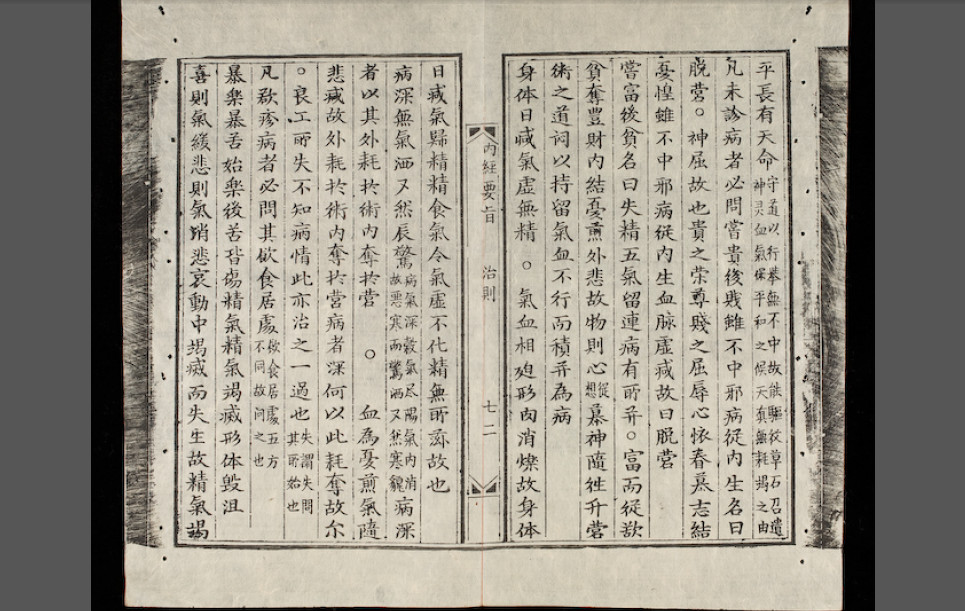 平長有天命守道以行舉無不中故能驅役草石召遣
神灵血氣保平和之候天真無耗竭之由
凡未診病者必問嘗貴後賎雖不中邪病從內生名曰
脫营。神屈故也貴之荣尊賤之屈辱心懐眷慕志結
憂惶雖不中邪病從內生血脉虛減故曰脫营
嘗富後貧名曰失精五氣留連病有所并。富而從欲
貧奪豐財內結憂煎外悲故物則心從想慕神隨徃升营
術之道词以持留氣血不行而積并為病
身体日減氣虛無精。氣血相廹形肉消爍故身体
內經要旨 治則 七二
日减氣歸精精食氣令氣虛不化精無所滋故也
病深無氣洒又然辰驚病氣深穀氣尽陽氣內消
故悪寒而驚洒又然寒貌病深
者以其外耗於術內奪於营。血為憂煎氣隨
悲减故外耗於術內奪於营病者深何以此耗奪故尔
。良工所失不知病情此亦治之一過也失謂失問
其所始也
凡欲疹病者必問其飲食居處飲食居處五方
不同故问之也
暴樂暴苦始樂後苦皆傷精氣精氣竭减形体毁沮
喜則氣緩悲則氣消悲哀動中竭减而失生故精氣竭